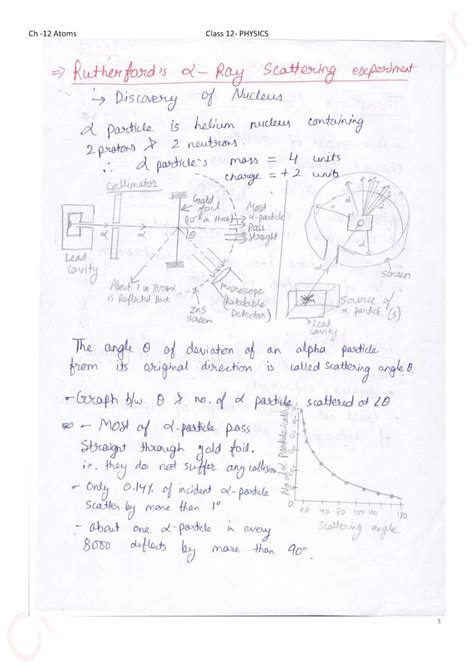 Ch -12 Atoms
Class 12- PHYSICS
⇒ Rutherford's α- Ray Scattering experiment
↳ Discovery of Nucleus
α particle is helium nucleus containing
2 protons & 2 neutrons
∴ α particle's mass = 4 units
charge = +2 units
Collimator
Gold
foil
Most
α-particle
Pass
Straight
α
α
θ
Lead
cavity
About 1 in 8000 α
is Reflected Back
ZnS
Screen
Microscope
(Rotatable
Detector)
α
Screen
Source of
α particle (s)
Lead
cavity
The angle θ of deviation of an alpha particle
from its original direction is called scattering angle θ.
- Graph b/w θ & no. of α particle scattered at ∠θ
- Most of α-particle pass
Straight through gold foil.
i.e. they do not suffer any collision
- Only 0.14% of incident α-particle
Scatter by more than 1°
- about one α-particle in every
8000 deflects by more than 90°.
No of α Particle
20 40 80 100 180
Scattering angle
3